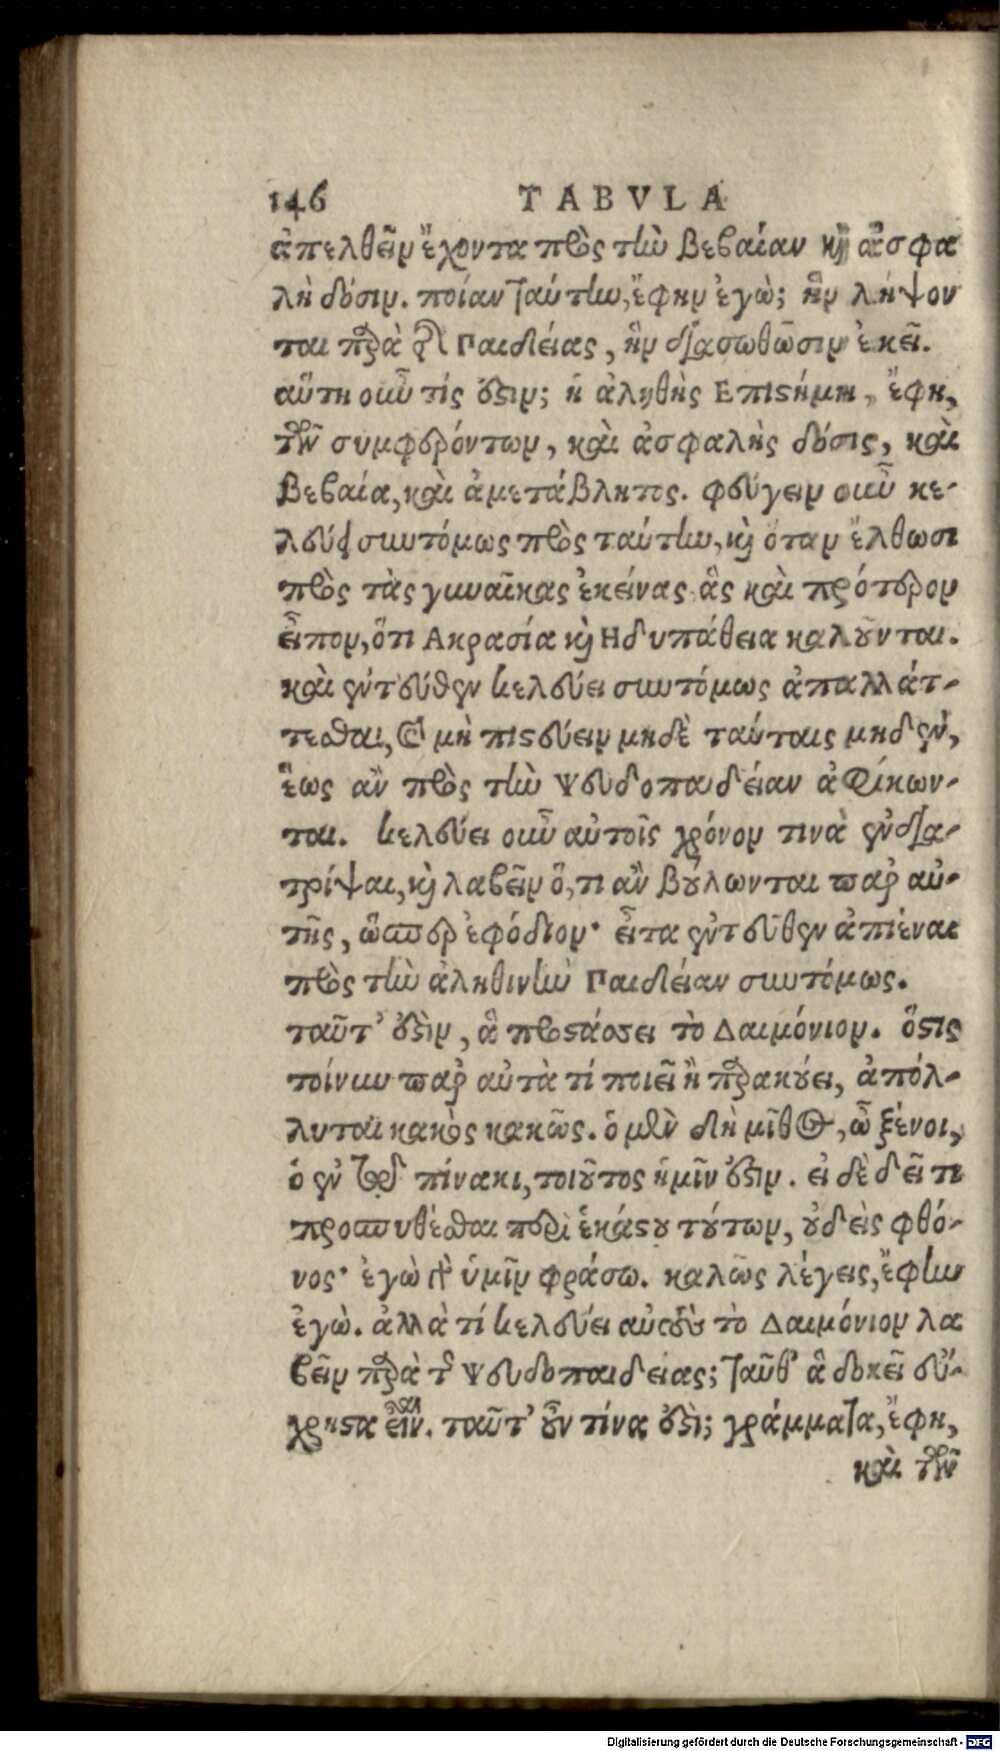 146 TABVLA
ἀπελθεῖν ἔχοντα πρὸς τὴν βεβαίαν καὶ ἀσφα
λῆ δόσιν. ποίαν ταύτην, ἔφην ἐγὼ; ἣν λήψον
ται παρὰ τῆς Παιδείας, ἣν διασωθῶσιν ἐκεῖ.
αὕτη οὖν τίς ἐστιν; ἡ ἀληθὴς Επιστήμη, ἔφη,
τῶν συμφερόντων, καὶ ἀσφαλὴς δόσις, καὶ
βεβαία, καὶ ἀμετάβλητος. φεύγειν οὖν κε-
λεύει συντόμως πρὸς ταύτην, καὶ ὅταν ἔλθωσι
πρὸς τὰς γυναῖκας ἐκείνας ἃς καὶ πρότερον
εἶπον, ὅτι Ακρασία καὶ Ηδυπάθεια καλοῦνται.
καὶ ἐντεύθεν κελεύει συντόμως ἀπαλλάτ-
τεσθαι, καὶ μὴ πιστεύειν μηδὲ ταύταις μηδὲν,
ἕως ἂν πρὸς τὴν Ψευδοπαιδείαν ἀφίκων-
ται. κελεύει οὖν αὐτοῖς χρόνον τινὰ ἐνδια-
τρίψαι, καὶ λαβεῖν ὅ,τι ἂν βούλωνται παρ αὐ-
τῆς, ὥσπερ ἐφόδιον· εἶτα ἐντεῦθεν ἀπιέναι
πρὸς τὴν ἀληθινὴν Παιδείαν συντόμως.
ταῦτ' ἐστὶν, ἃ προστάσσει τὸ Δαιμόνιον. ὅστις
τοίνυν παρ αὐτὰ τί ποιεῖ ἢ παρακούει, ἀπόλ-
λυται κακὸς κακῶς. ὁ μὲν δὴ μῦθος, ὦ ξένοι,
ὁ ἐν τῷ πίνακι, τοιοῦτος ἡμῖν ἐστιν. εἰ δὲ δεῖ τι
προσπυθέσθαι περὶ ἑκάστου τούτων, οὐδεὶς φθό-
νος· ἐγὼ γὰρ ὑμῖν φράσω. καλῶς λέγεις, ἔφην
ἐγὼ. ἀλλὰ τί κελεύει αὐτοὺς τὸ Δαιμόνιον λα
βεῖν παρὰ τῆς Ψευδοπαιδείας; ταῦθ' ἃ δοκεῖ εὔ-
χρηστα εἶναι. ταῦτ' οὖν τίνα ἐστὶ; γράμματα, ἔφη,
καὶ τῶν
Digitalisierung gefördert durch die Deutsche Forschungsgemeinschaft - DFG